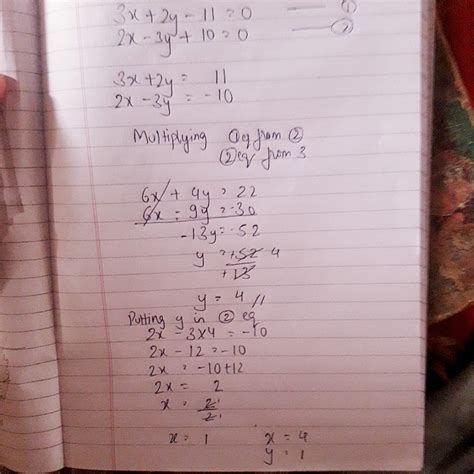 3x + 2y - 11 = 0 —— ①
2x - 3y + 10 = 0 —— ②
3x + 2y = 11
2x - 3y = -10
Multiplying ① eq from ②
② eq from 3
6x + 4y = 22
6x = 9y = -30
-13y = -52
y = +52 4
+13
y = 4 //
Putting y in ② eq
2x - 3x4 = -10
2x - 12 = -10
2x = -10+12
2x = 2
x = 2
2
x = 1 x = 4
y = 1